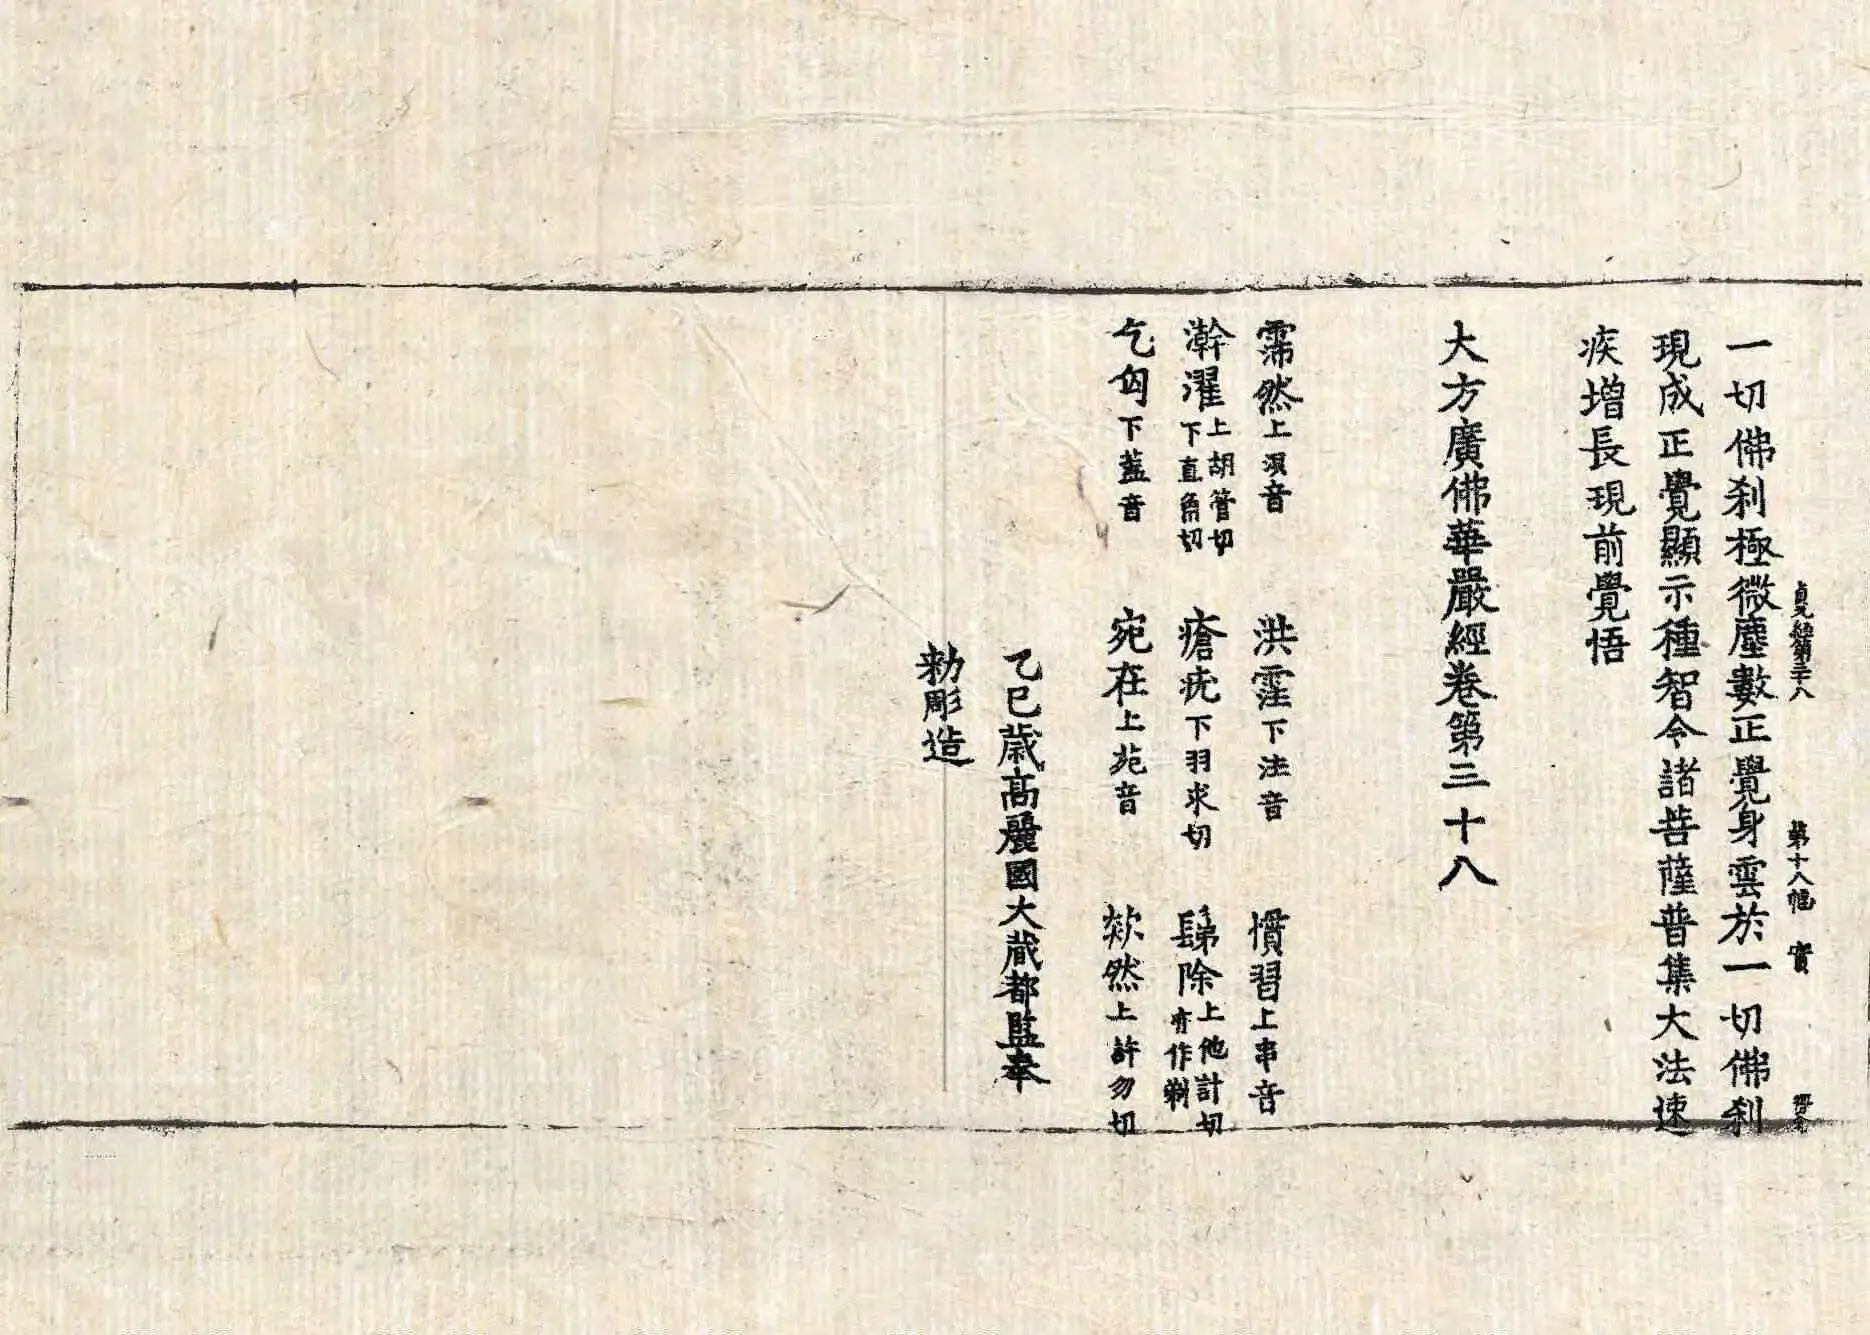 貞元經第三十八 第十八幅 實
一切佛刹極微塵數正覺身雲於一切佛刹
現成正覺顯示種智令諸菩薩普集大法速
疾增長現前覺悟
大方廣佛華嚴經卷第三十八
霈然上浿音 洪霔下注音 慣習上串音
澣濯上胡管切下直角切 瘡疣下羽求切 髰除上他計切有作剃
乞匃下蓋音 宛在上苑音 欻然上許勿切
乙巳歳高麗國大藏都監奉
勑彫造